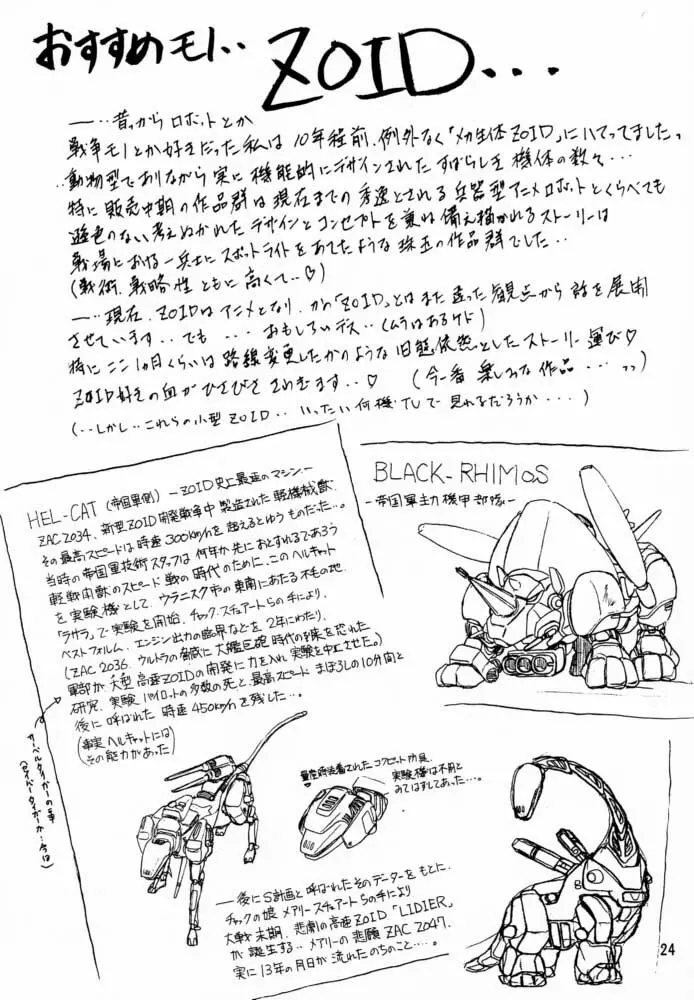 おすすめモノ‥ ZOID...
―‥昔っから ロボットとか
戦争モノとか好きだった私は 10年程前、例外なく「メカ生体ZOID」にハマってましたっ
‥動物型でありながら実に機能的にデザインされたすばらしき機体の数々…
特に販売中期の作品群は現在までの秀逸とされる兵器型アニメロボットとくらべても
遜色のない考えぬかれたデザインとコンセプトを兼ね備え描かれるストーリーは
戦場における一兵士にスポットライトをあてたような珠玉の作品群でした‥
(戦術、戦略性ともに高くて‥♡)
―‥現在、ZOIDはアニメとなり、かの「ZOID」とはまた違った観点から話を展開
させています‥でも …おもしろいデス‥(ムラはあるケド)
特にここ1ヵ月くらいは路線変更したかのような旧態依然としたストーリー運び♡
ZOID好きの血がひさびささわぎます‥♡ (今一番楽しみな作品…っっ)
(‥しかし‥これらの小型ZOID‥いったい何機TVで見れるだろうか‥‥)
HEL-CAT (帝国軍側) ―ZOID史上最速のマシン―
ZAC2034、新型ZOID開発戦争中製造された軽機械獣、
その最高スピードは時速300km/hを超えるとゆうものだった…。
当時の帝国軍技術スタッフは何年か先におとずれるであろう
軽戦闘獣のスピード戦の時代のために、このヘルキャット
を実験機として、ウラニスク市の東南にあたる不毛の地、
「ラサラ」で実験を開始、チャック・スチュアートらの手により、
ベストフォルム、エンジン出力の臨界などを2年にわたり、
(ZAC 2036、ウルトラの脅威に大艦巨砲時代の到来を恐れた
軍部が大型高速ZOIDの開発に力を入れ実験を中止させた。)
研究、実験パイロットの多数の死と、最高スピードまぼろしの10分間と
後に呼ばれた 時速450km/hを残した…。
(事実ヘルキャットには
その能力があった)
サーベルタイガーの事
(セイバータイガーか…今は)
BLACK-RHIMOS
―帝国軍主力機甲部隊―
量産時装着されたコクピット防具、
実験機は不用と
みてはずしてあった…。
―後にS計画と呼ばれたそのデーターをもとに、
チャックの娘 メアリースチュアートらの手により
大戦末期、悲劇の高速ZOID「LIDIER」
が誕生する‥メアリーの悲願 ZAC 2047、
実に13年の月日が流れたのちのこと…。
24